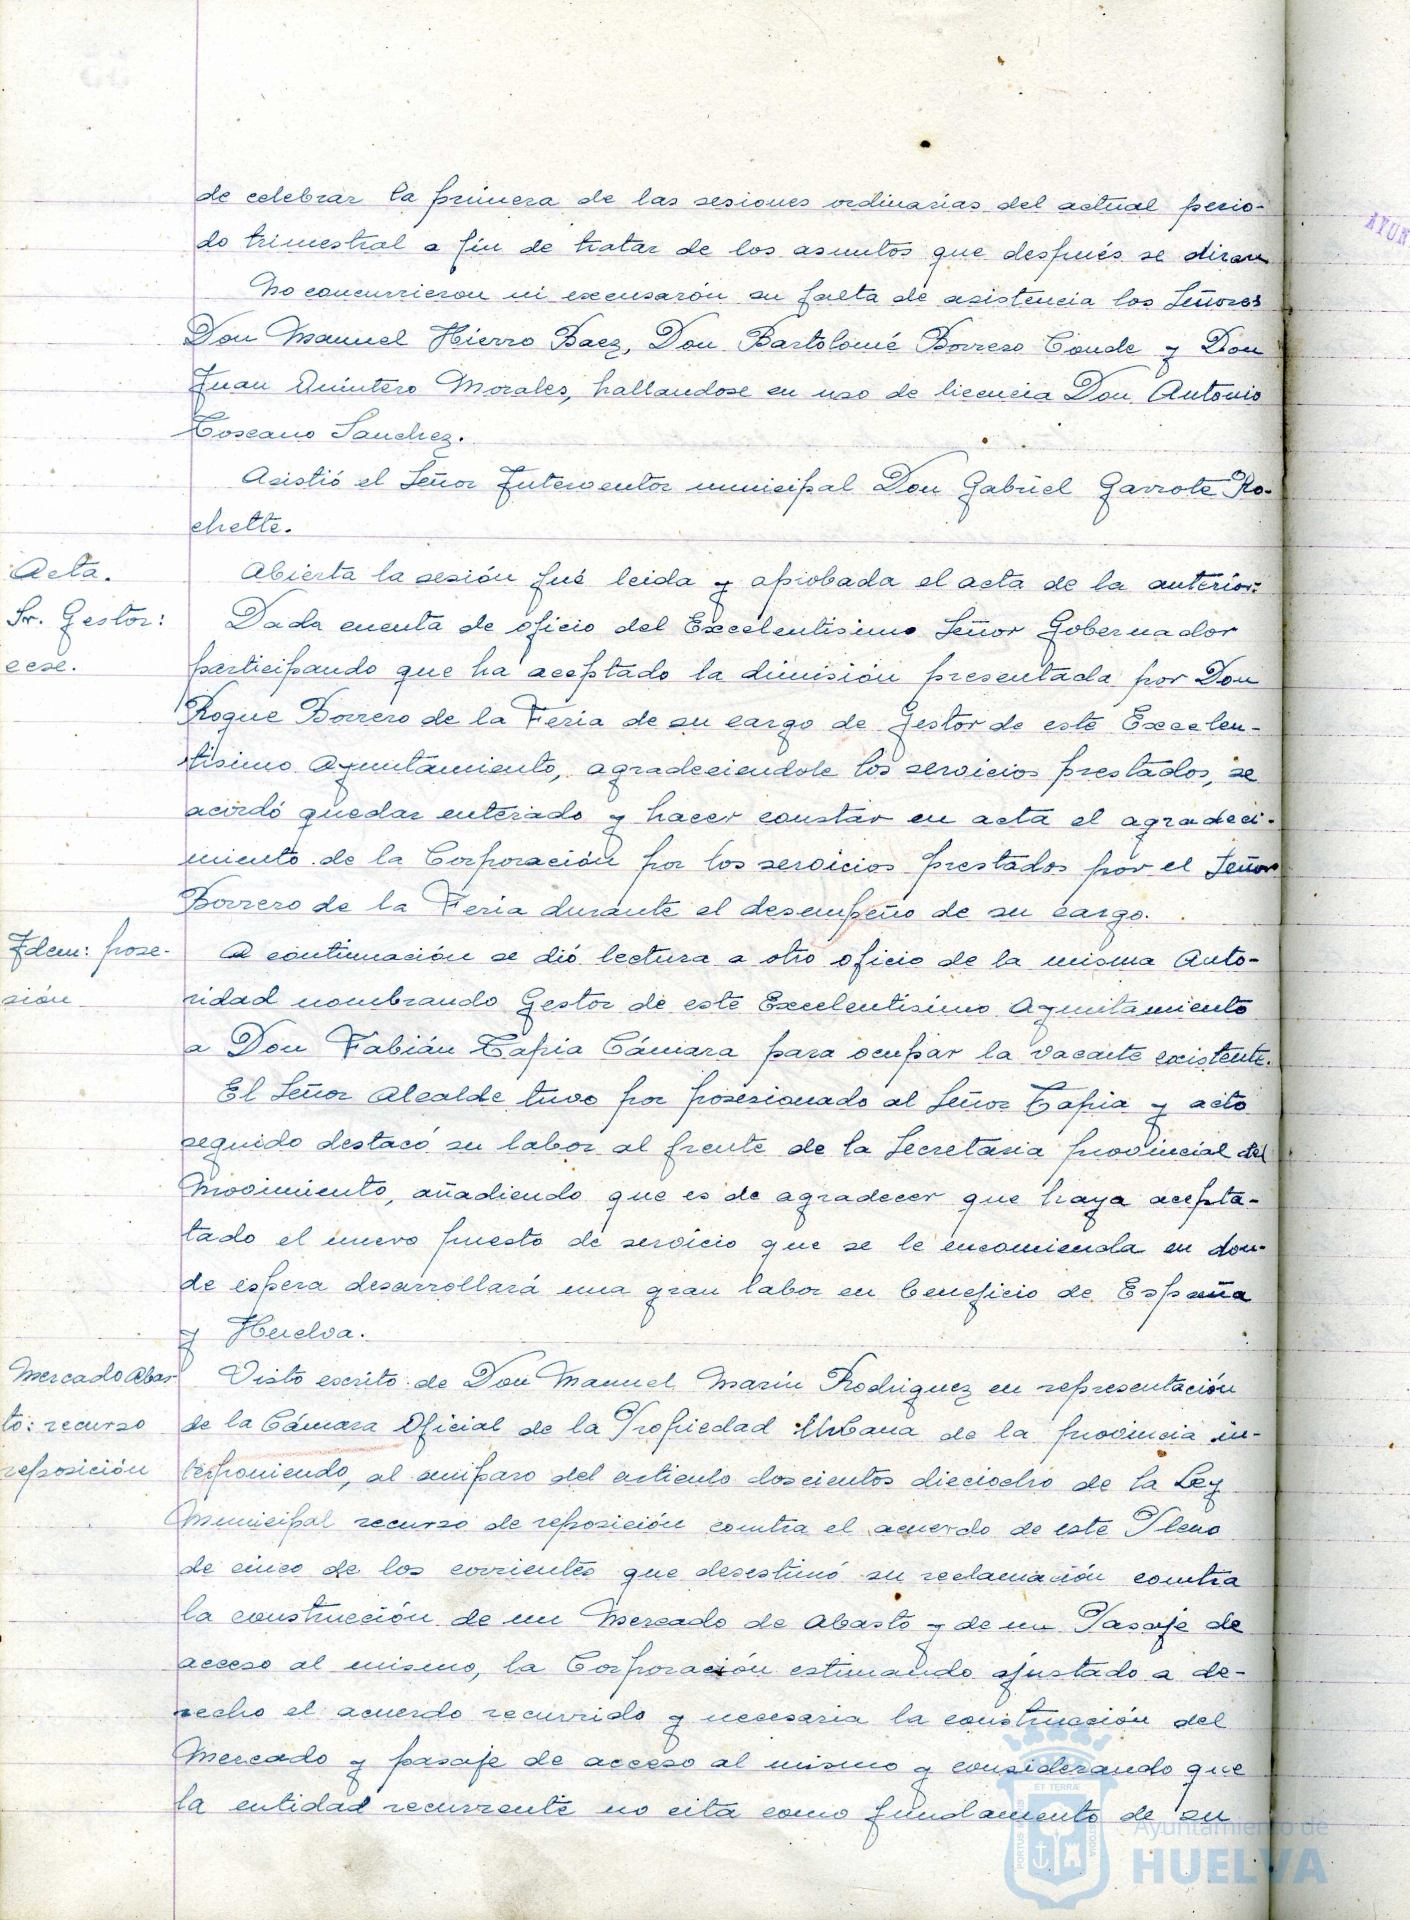 de celebrar la primera de las sesiones ordinarias del actual perio-
do trimestral a fin de tratar de los asuntos que después se diran
No concurrieron ni excusarón su falta de asistencia los Señores
Don Manuel Hierro Baez, Don Bartolomé Borrero Conde y Don
Juan Quintero Morales, hallandose en uso de licencia Don Antonio
Toscano Sanchez.
Asistió el Señor Interventor municipal Don Gabriel Garrote Ro-
chette.
Acta.
Abierta la sesión fué leida y aprobada el acta de la anterior.
Sr. Gestor:
cese.
Dada cuenta de oficio del Excelentisimo Señor Gobernador
participando que ha aceptado la dimisión presentada por Don
Roque Borrero de la Feria de su cargo de Gestor de este Excelen-
tisimo Ayuntamiento, agradeciendole los servicios prestados, se
acordó quedar enterado y hacer constar en acta el agradeci-
miento de la Corporación por los servicios prestados por el Señor
Borrero de la Feria durante el desempeño de su cargo.
Idem: pose-
sión
A continuación se dió lectura a otro oficio de la misma Auto-
ridad nombrando Gestor de este Excelentisimo Ayuntamiento
a Don Fabián Tapia Cámara para ocupar la vacante existente.
El Señor Alcalde tuvo por posesionado al Señor Tapia y acto
seguido destacó su labor al frente de la Secretaria provincial del
Movimiento, añadiendo que es de agradecer que haya acepta-
tado el nuevo puesto de servicio que se le encomienda en don-
de espera desarrollará una gran labor en beneficio de España
y Huelva.
Mercado Abas-
to: recurso
reposición
Visto escrito de Don Manuel Marin Rodriguez en representación
de la Cámara Oficial de la Propiedad Urbana de la provincia in-
terponiendo, al amparo del articulo doscientos dieciocho de la Ley
Municipal recurso de reposición contra el acuerdo de este Pleno
de cinco de los corrientes que desestimó su reclamación contra
la construcción de un Mercado de Abasto y de un Pasaje de
acceso al mismo, la Corporación estimando ajustado a de-
recho el acuerdo recurrido y necesaria la construcción del
Mercado y pasaje de acceso al mismo y considerando que
la entidad recurrente no cita como fundamento de su
ET TERRAE
PORTUS
CUSTODIA
Ayuntamiento de
HUELVA
AYUN